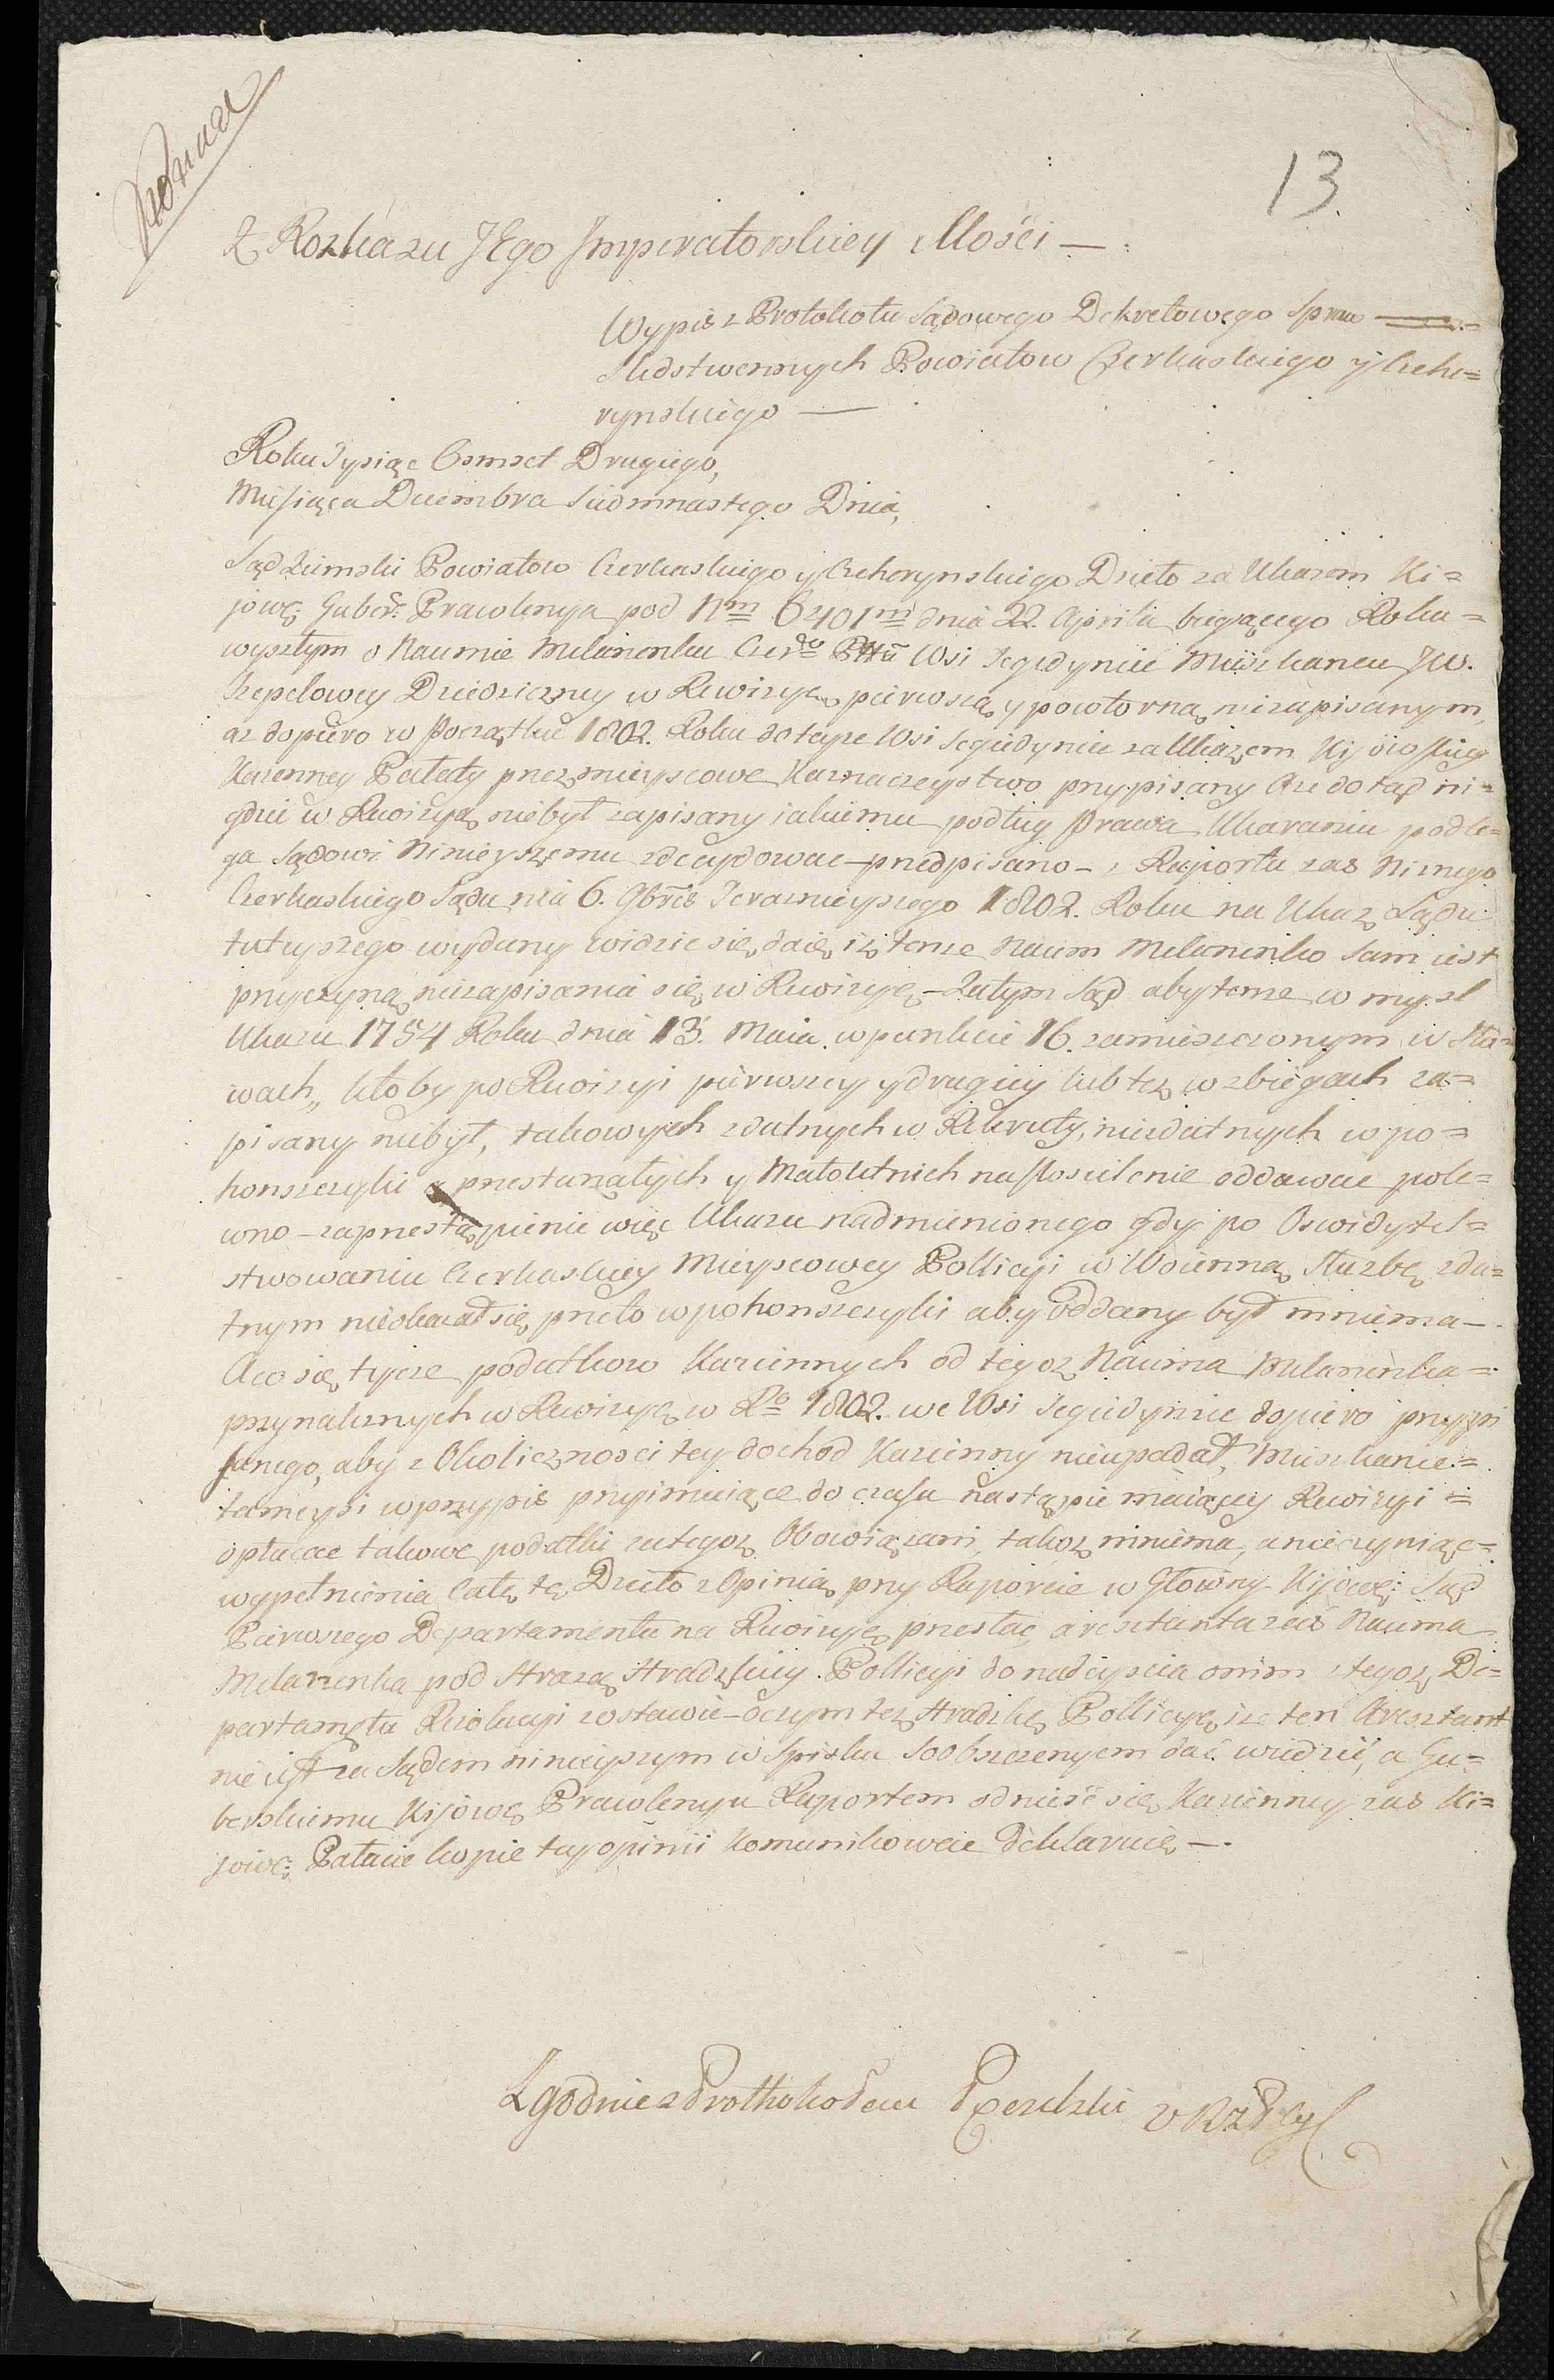 13.
Z Rozkazu JEgo Imperatorskiey Mości —
Wypis z Protokołu Sądowego Dekretowego Spraw
Sledstwennych Powiatow Czerkaskiego y Czehe=
rynskiego —
Roku Tysiąc Osmset Drugiego,
Miesiąca Decembra Siedmnastego Dnia,
Sąd Ziemski Powiatow Czerkaskiego y Czeherynskiego Dzieło za Ukazem Ki=
jowę: Guber: Prawlenya pod Nm 6401m dnia 22. Aprila bieżącego Roku=
wyszłym o Naumie Melanenku Czergo Pttu Wsi Segedyniec Mieszkancu JW.
Szepelowey Dziedziczney w Rewizyę pierwszą y powtorną niezapisanym,
az dopiero w Początku 1802. Roku do teyze Wsi Segiedyniec za Ukazem Kijowskiey
Kazienney Pałaty przez mieyscowe Kaznaczeystwo przypisany Ze dotąd ni=
gdzie w Rewizyą niebył zapisany iakiemu podług Prawa Ukaraniu podle=
ga Sądowi Ninieyszemu zdecydowac – przedpisano – z Raportu zas Niznego
Czerkaskiego Sądu dnia 6. 9bris Teraznieyszego 1802. Roku na Ukaz Sądu
tuteyszego wydany widziec się daie, iz tenze Naum Melanenko Sam iest
przyczyną niezapisania się w Rewizyę – Zatym Sąd aby tenze w mysl
Ukazu 1754 Roku dnia 13. Maia w punkcie 16. zamieszczonym w Sło=
wach„ kto by po Rewizyi pierwszey y drugiey lub tez w zbiegach za=
pisany niebył, takowych zdatnych w Rekruty, niezdatnych w po=
honszczyki a przestarzałych y Małoletnich na Posielenie oddawac pole=
wno – za przestąpienie więc Ukazu nadmienionego gdy po Oswidytel=
stwowaniu Czerkaskiey Mieyscowey Pollicyi w Woienną Służbę zda=
tnym nieokazał się, przeto w pohonszczyki aby oddany był mniema –.
A co się tycze podatkow Kaziennych od tegoz Nauma Melanenka =
przynaleznych w Rewizyę w Ro 1802. we Wsi Segiedyńcie dopiero przypi
sanego, aby z Okoliczności tey dochod Kazienny nieupadał, Mieszkance =
tameysi w przypis przyimuiące do czasu nastąpic maiącey Rewizyi =
opłacac takowe podatki za tegoz Obowiązani, takoz mniema, a nieczyniąc =
wypełnienia Całe te Dzieło z Opinią przy Raporcie w Głowny Kijowę: Sąd
Pierwszego Departamentu na Rewizyę przesłac, aresztanta zas Nauma
Melanenka pod Strażą Hradzkiey Pollicyi do nadeyscia o nim z tegoz De=
partamętu Rezolucyi zostawic – oczym tez Hradzkę Pollicyę, ize ten Aresztant
nie iest za Sądem ninieyszym w Spisku Soobszczenyem dać wiedzić, a Gu=
berskiemu Kijowę Prawlenyu Raportem odnieść się, Kazienney zas Ki=
jowę: Pałacie kopie tey opinii komunikowac deklaruie –.
Zgodnie z Prothokołem